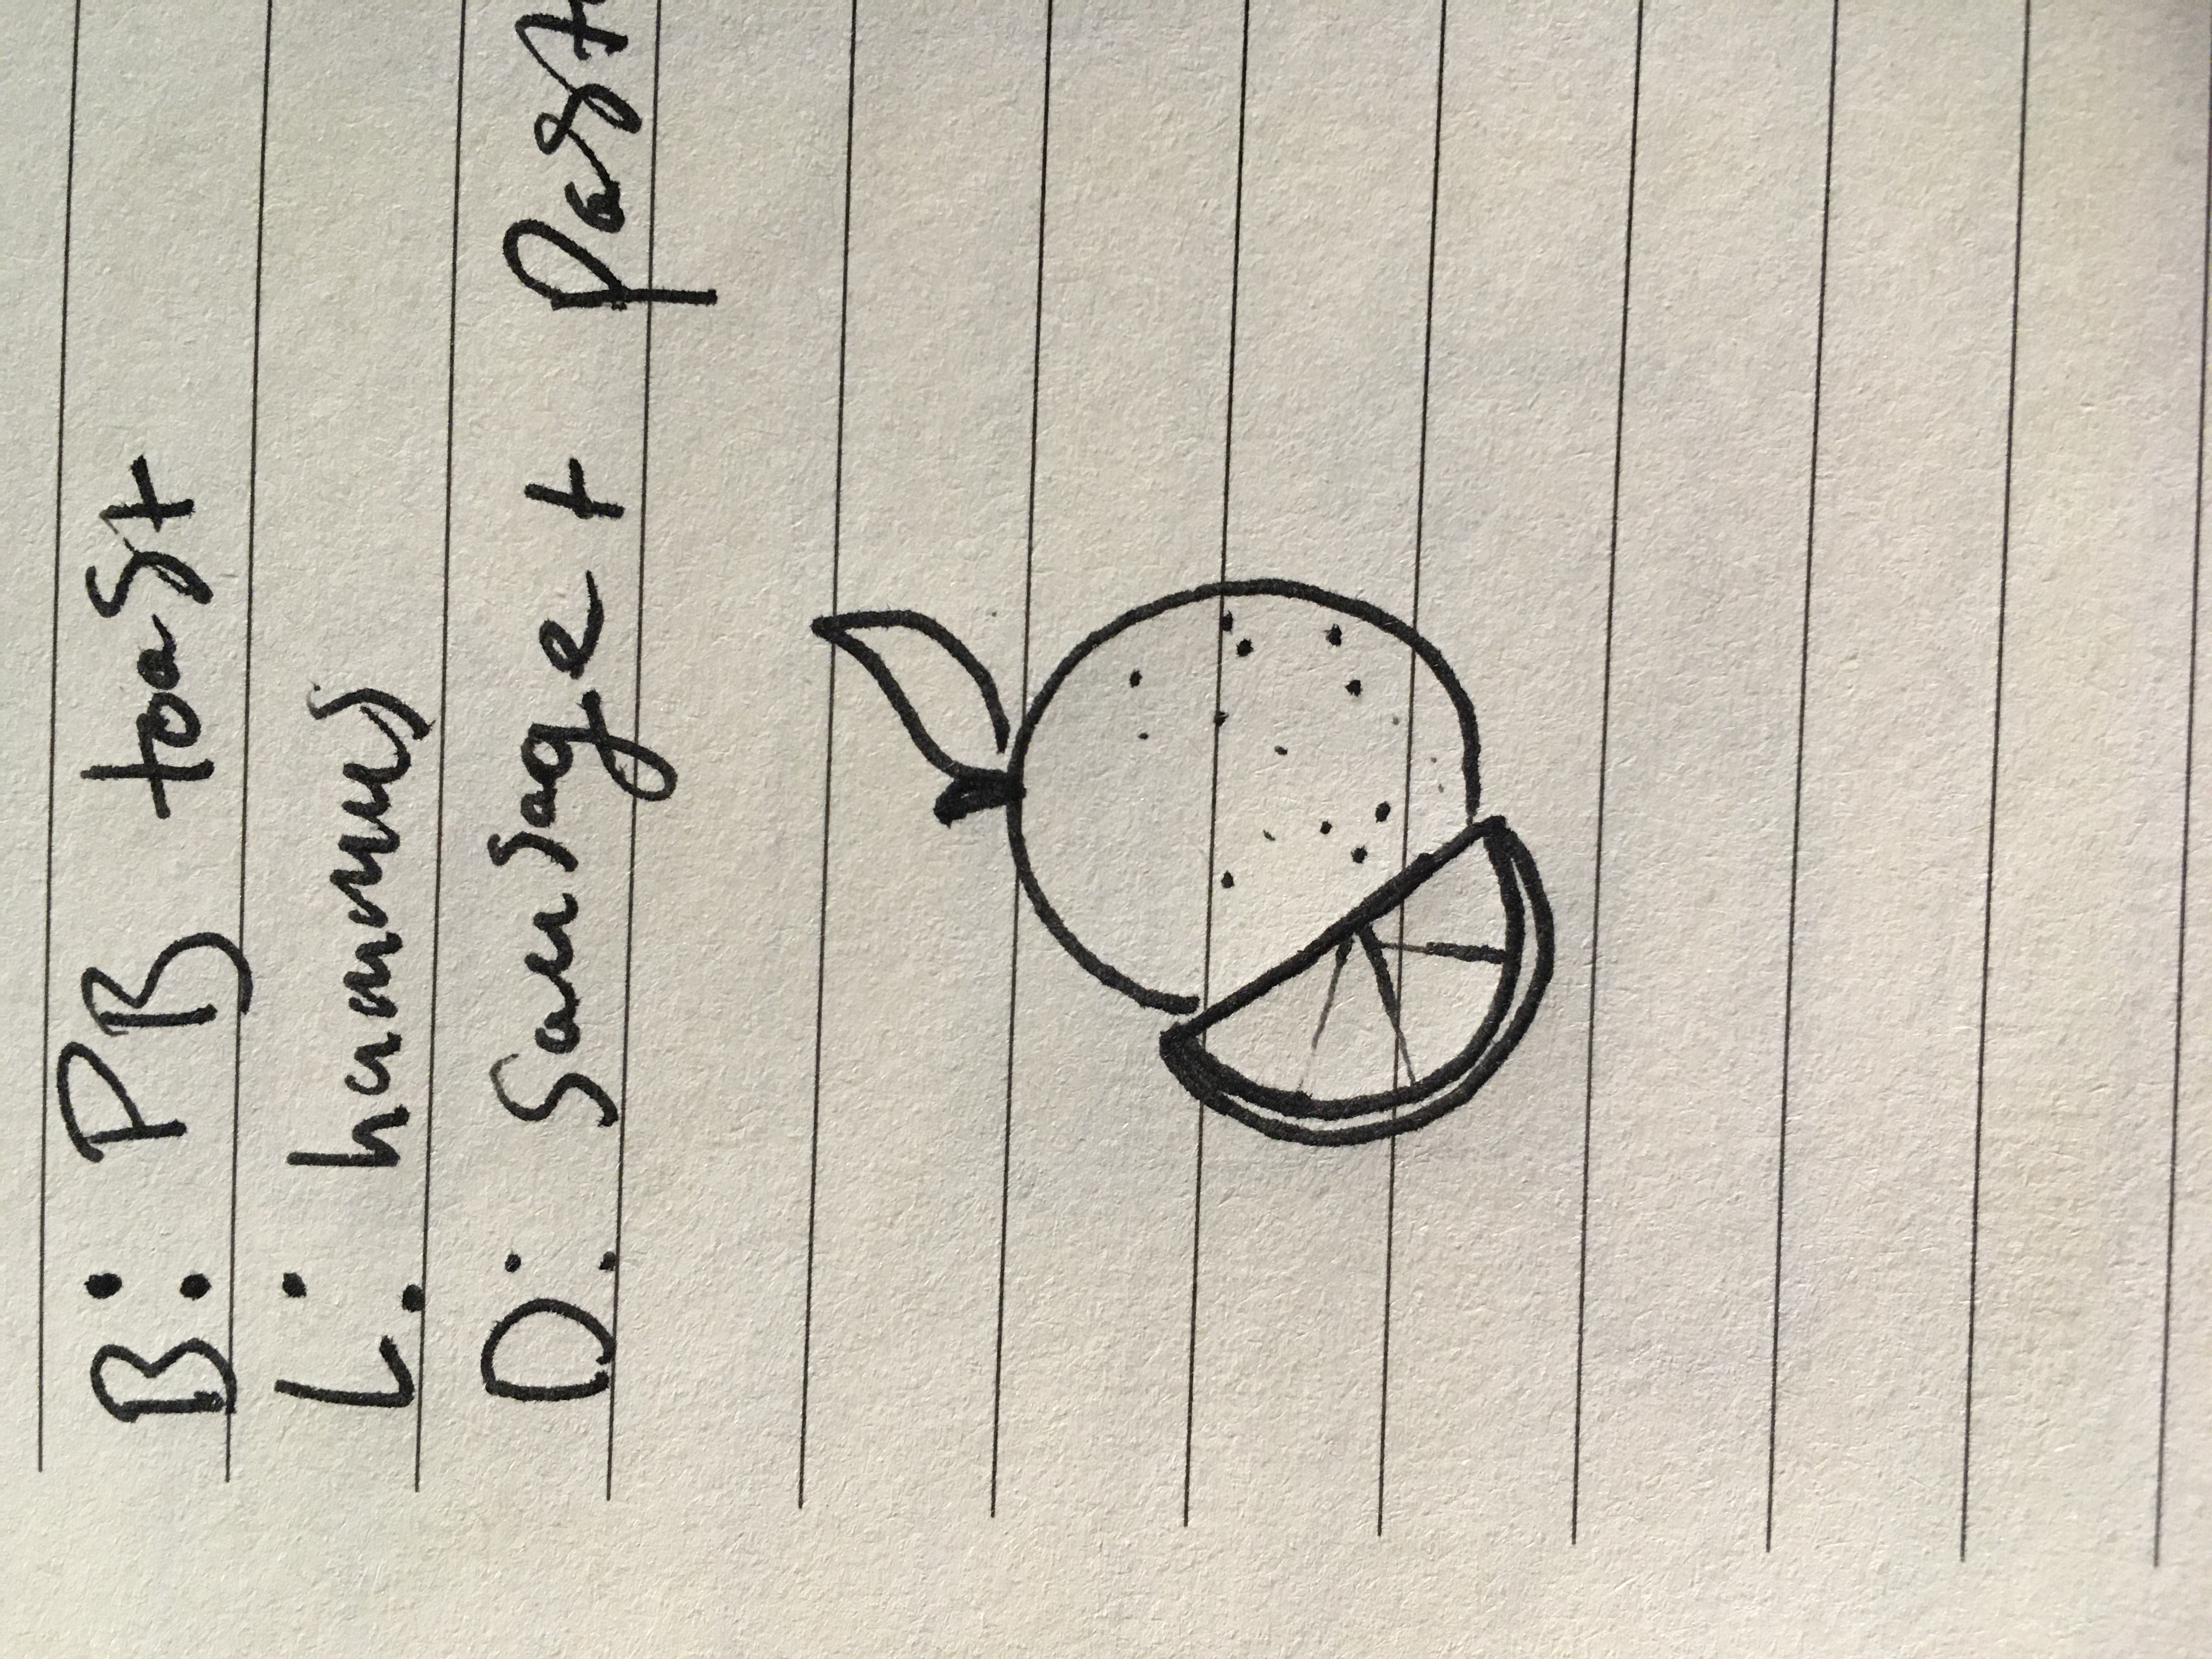 B: PB toast
L: hummus
D: Sausage + pasta